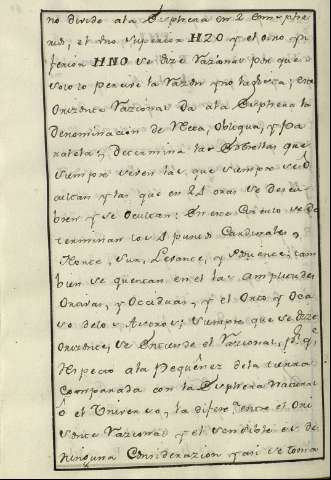 no divide a la Esphera en 2 Emispherios, el uno superior HZO y el otro ynferior HNO se dize Razional por que
solo lo percive la Razon y no la
Orizonte Razional da a la Esphera la
Denominacion de Recta, Obliqua, y Paralela, y Determina las Estrellas que
siempre se ven las que siempre se ôcultan y las que en 24 oras se descubren y se Ocultan; En este Circulo se determinan los 4 puntos Cardinales,
Norte, Sur, Levante, y Poniente, tambien se quentan en el las Amplitudes
Ortivas, y Occiduas, y el Orto y Ocaso de los Astros; siempre que se dize
Orizonte, se Entiende el Razional,
Respecto a la Pequeñez de la tierra
Comparada con la Esphera Natural
ô el Universo, la diferª entre el Orizonte Razional y el sensible es de
ninguna Considerazion y asi se toma